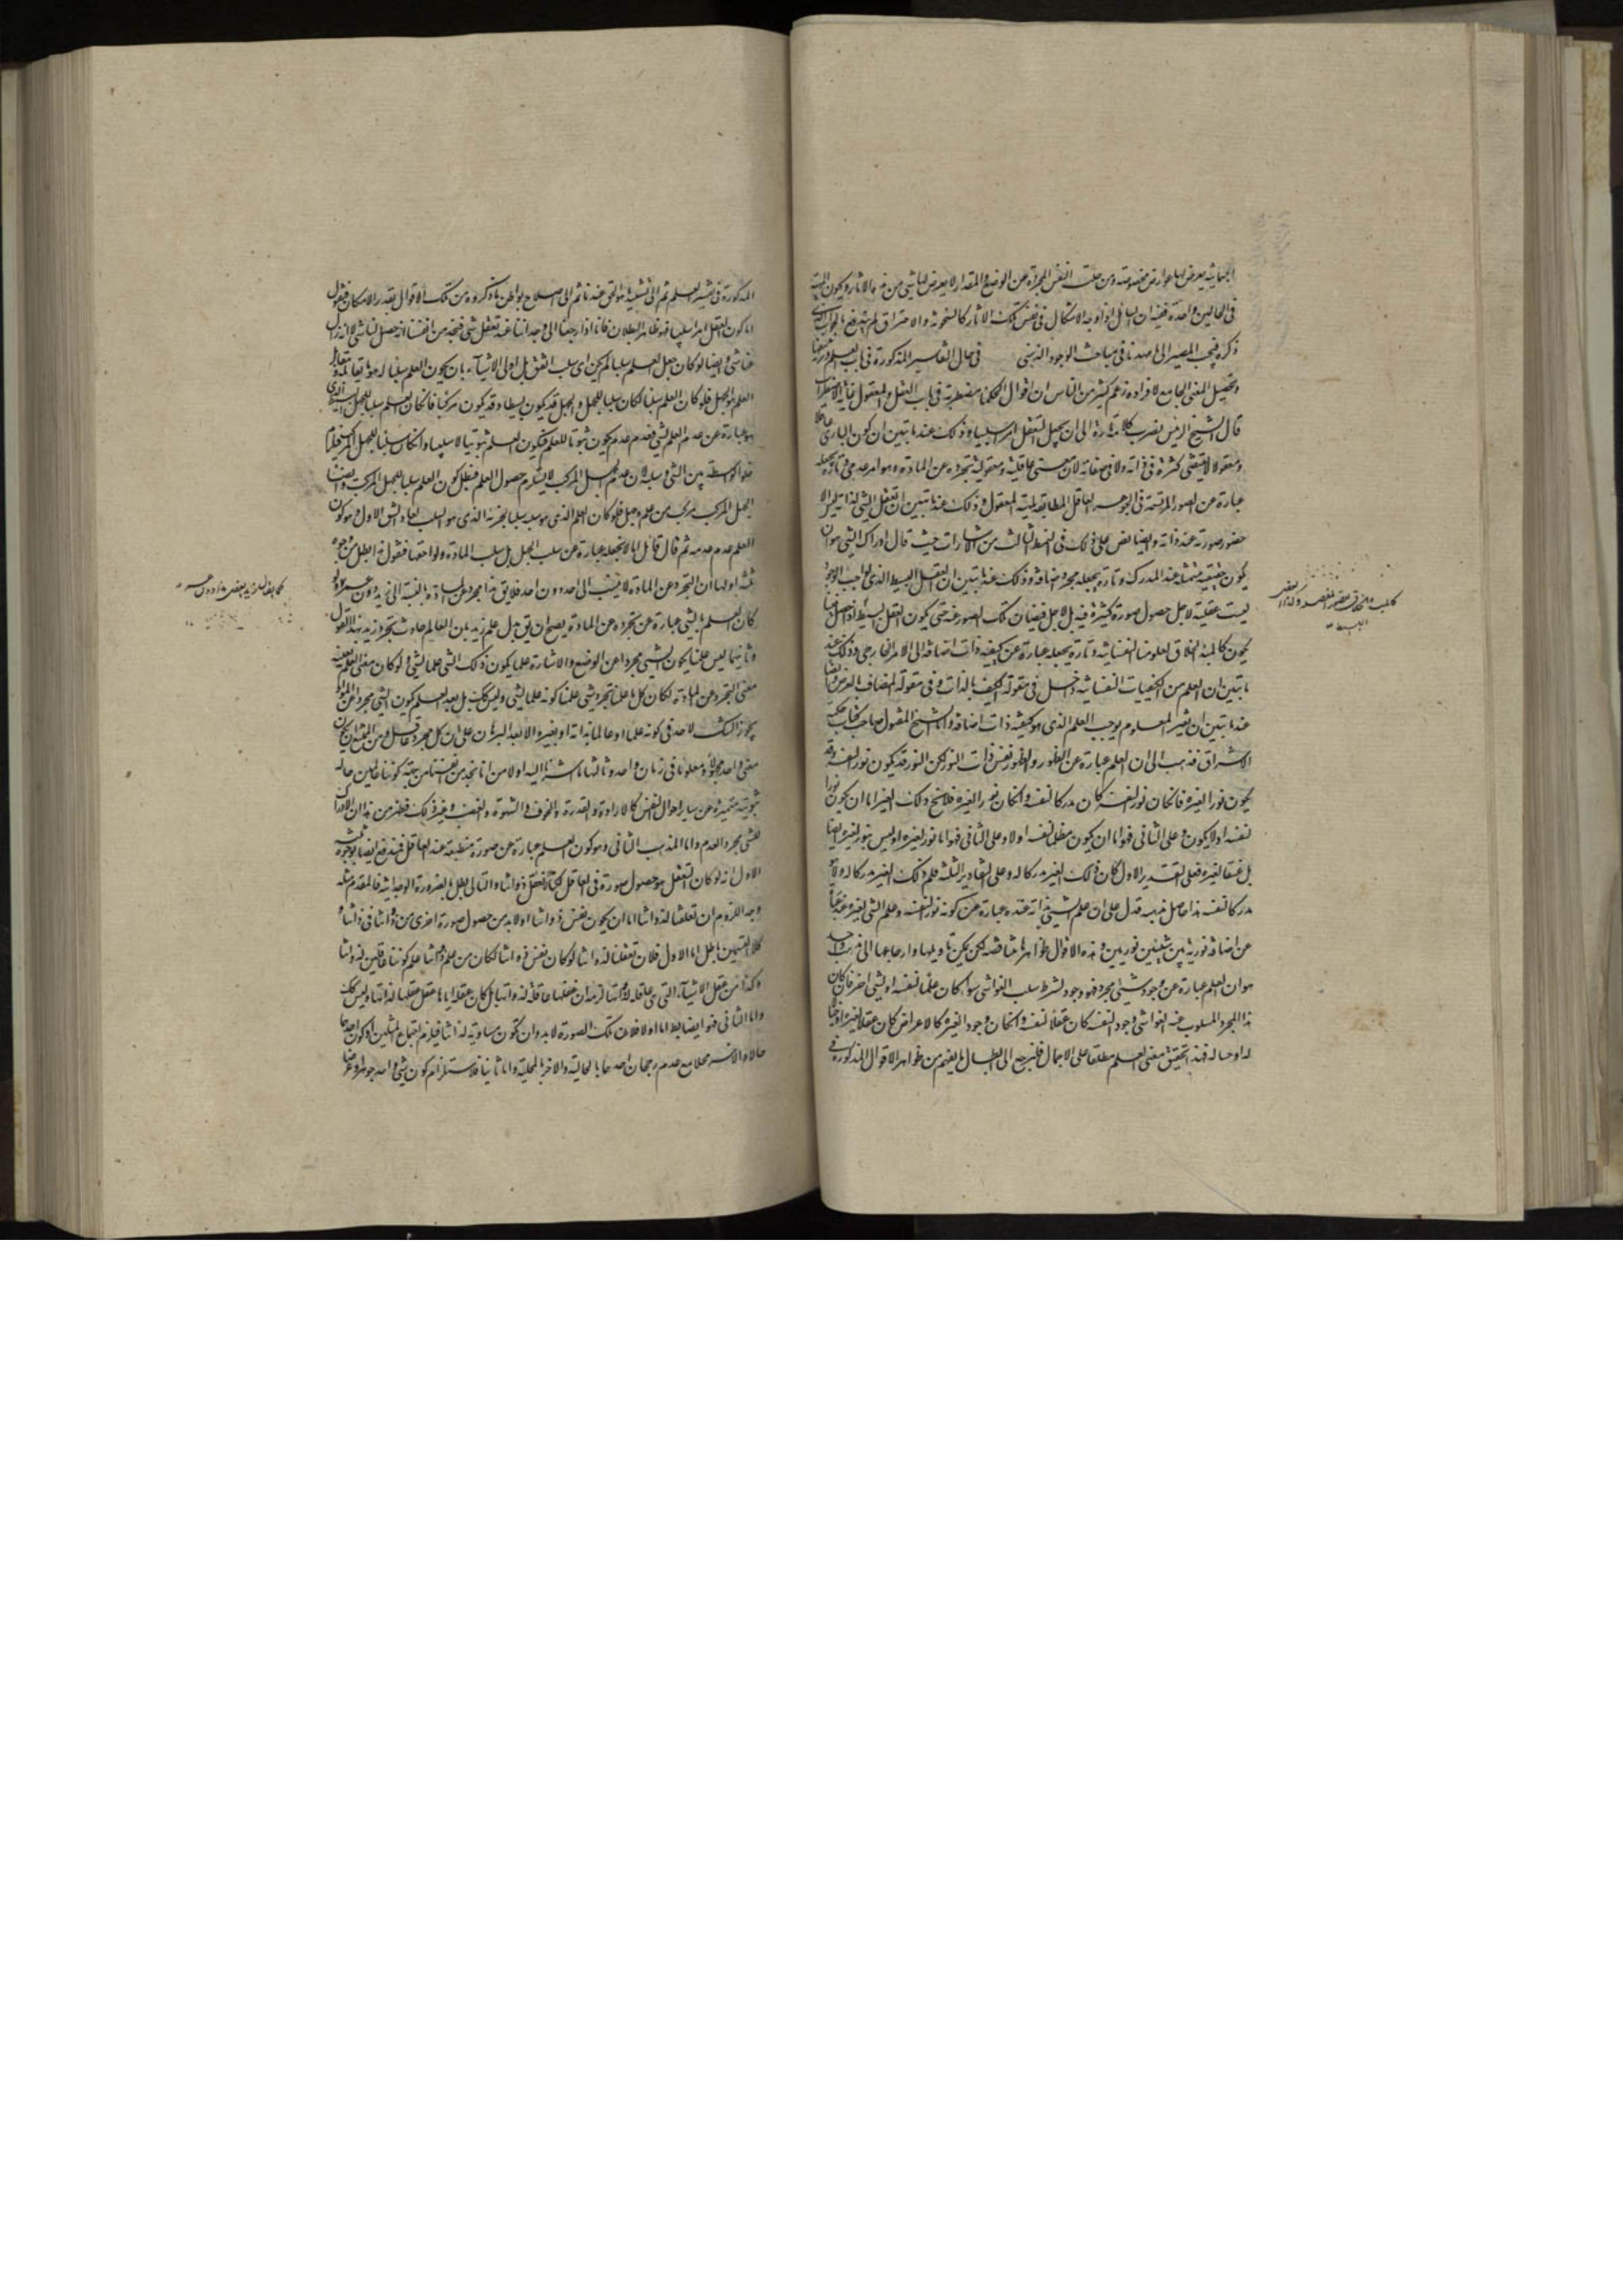 الجسمانية يعرض لها عوارض مخصوصة ومن حلت النفس المجردة عن الوضع والمقدار لا يعرض لها شيء من هذه الاثار ويكون المهية
في الحالين واحدة ففيه ان السائل اذا اوجه الاشكال في نفس تلك الاثار كالسخونة والاحتراق لم يندفع بالجواب الذي
ذكره فيجب المصير الى ما مهدناه في مباحث الوجود الذهني في حال التفاسير المذكورة في باب العلم وتزييفها
وتحصيل المعنى الجامع لافراده زعم كثير من الناس ان اقوال الحكماء مضطربة في باب العقل والمعقول غاية الاضطراب
قال الشيخ الرئيس يضرب كلامه تارة الى ان يجعل التعقل امرا سلبيا وذلك عندما تبين ان كون الباري عاقلا
ومعقولا لا يقتضي كثرة في ذاته ولا في صفاته لان معنى عاقليته ومعقوليته تجرده عن المادة وهو امر عدمي وتارة يجعله
عبارة عن الصور المرتسمة في الجوهر العاقل المطابقة لمهية المعقول وذلك عندما تبين ان تعقل الشيء لذاته ليس الا
حضور صورته عند ذاته وايضا نص على ذلك في النمط الثالث من الاشارات حيث قال ادراك الشيء هو ان
يكون حقيقته متمثلة عند المدرك وتارة يجعله مجرد اضافة وذلك عندما تبين ان العقل البسيط الذي لواجب الوجود
ليست عقليته لاجل حصول صورة كثيرة فيه بل لاجل فيضان تلك الصور عنه حتى يكون العقل البسيط
يكون كالمبدء الخلاق لعلومنا النفسانية وتارة يجعله عبارة عن كيفية ذات اضافة الى الامر الخارجي وذلك عند
ما تبين ان العلم من الكيفيات النفسانية داخل في مقولة الكيف بالذات وفي مقولة المضاف بالعرض وايضا
عندما تبين ان تغير المعلوم يوجب العلم الذي هو كيفية ذات اضافة واما الشيخ المقتول صاحب كتاب حكمة
الاشراق فذهب الى ان العلم عبارة عن الظهور والظهور نفس ذات النور لكن النور قد يكون نورا لنفسه وقد
يكون نورا لغيره فان كان نورا لنفسه كان مدركا لنفسه وان كان نورا لغيره فلا يخ ذلك الغير اما ان يكون نورا
لنفسه اولا يكون وعلى الثاني فهو اما ان يكون مظلما لنفسه اولا وعلى الثاني فهو اما نور لغيره او ليس بنور لغيره ايضا
بل غسقا لغيره فعلى التقدير الاول كان ذلك الغير مدركا له وعلى التقادير الثلثة فلم ذلك الغير مدركا له ولا هو
مدركا لنفسه هذا حاصل مذهبه فدل على ان علم الشيء بذاته عنده عبارة عن كونه نورا لنفسه وعلم الشيء لغيره عبارة
عن اضافة نورية بين شيئين نوريين وهذه الاقوال ظواهرها متناقضة لكن يمكن تاويلها وارجاعها الى مذهب واحد
هو ان العلم عبارة عن وجود شيء مجرد فهو وجود بشرط سلب الغواشي سواء كان علما لنفسه او لشيء اخر فان كان
هذا المجرد المسلوب عنه الغواشي وجود لنفسه كان عقلا لنفسه وان كان وجود لغيره كالاعراض كان عقلا لغيره او خيالا
له او حسا له فهذه تحقيق معنى العلم مطلقا على الاجمال فلنرجع الى ابطال ما يفهم من ظواهر الاقوال المذكورة في
المذكورة في تفسير العلم ثم الى تنقيد ما هو الحق عندنا ثم الى اصلاح بواطن ما ذكروه من تلك الاقوال بقدر الامكان فنقول
اما كون التعقل امرا سلبيا فهو ظاهر البطلان فانا اذا رجعنا الى وجداننا عند تعقل شيء فنجد من انفسنا انه حصل لنا شيء لا انه زال
عنا شيء وايضا لو كان جعل العلم سلبا لم يكن اي سلب اتفق بل اولى الاشياء بان يكون العلم سلبا له هو ما يقابله ومقابل
العلم هو الجهل فلو كان العلم سلبا لكان سلبا للجهل والجهل قد يكون بسيطا وقد يكون مركبا فان كان العلم سلبا للجهل البسيط الذي
هو عبارة عن عدم العلم لشيء فعدم عدم يكون ثبوتا للعلم فيكون العلم ثبوتيا لا سلبيا وان كان سلبا للجهل المركب فيلزم
خلو الواسطة بين الشيء وسلبه لان عدم الجهل المركب لا يستلزم حصول العلم فبطل كون العلم سلبا للجهل المركب وايضا
الجهل المركب مركب من علم وجهل فلو كان العلم الذي هو سلبه سلبا لجزئه الذي هو السلب لعاد الشق الاول وهو كون
العلم عدم عدمه ثم قال قائل انا لا نجعله عبارة عن سلب الجهل بل سلب المادة ولواحقها فنقول هذا باطل من وجوه
ثلثة اولها ان التجرد عن المادة لا ينسب الى احد دون احد فلا يق هذا مجرد عن المادة بالنسبة الى زيد دون عمرو ولو
كان العلم بالشيء عبارة عن تجرده عن المادة يصح ان يق بدل علم زيد بان العالم حادث تجرد زيد بهذا القول
وثانيها ليس علمنا بكون الشيء مجردا عن الوضع والاشارة علما بكون ذلك الشيء علما لشيء ولو كان معنى العلم بعينه
معنى التجرد عن المادة لكان كل ما علمنا تجرد شيء علمنا كونه علما لشيء وليس كك بل بعد العلم بكون الشيء مجردا عن المواد
يجوز الشك لاحد في كونه علما او عالما بذاته او بغيره الا بعد البرهان على ان كل مجرد عاقل ومن الممتنع ان يكون
معنى واحد مجهولا ومعلوما في زمان واحد وثالثها ما اشرنا اليه اولا من انا نجد من نفسنا من جهة كوننا عالمين حالة
ثبوتية متميزة عن ساير احوال النفس كالارادة والقدرة والخوف والشهوة والغضب وغير ذلك فظهر من هذا ان الادراك
للشيء مجرد العدم واما المذهب الثاني وهو كون العلم عبارة عن صورة منطبعة عند العاقل فيندفع ايضا بوجوه ثلثة
الاول انه لو كان التعقل هو حصول صورة في العاقل لكنا لا نعقل ذواتنا والتالي باطل بالضرورة الوجدانية فالمقدم مثله
وجه اللزوم ان تعقلنا لذواتنا اما ان يكون نفس ذواتنا اولا بد من حصول صورة اخرى من ذواتنا في ذواتنا و
كلا القسمين باطل اما الاول فلان تعقلنا لذواتنا لو كان نفس ذواتنا لكان من علم ذواتنا علم كوننا عاقلين لذواتنا
وكذا من عقل الاشياء التي هي عاقلة لذواتها لزمه ان عقلها عاقلة لذواتها بل كان عقله اياها عقل عقلها لذاتها وليس كك
واما الثاني فهو ايضا بط اما اولا فلان تلك الصورة لا بد وان تكون مساوية لذاتنا فيلزم اجتماع المثلين او كون احدهما
حالا والاخر محلا مع عدم رجحان احدهما بالحالية والاخر بالمحلية واما ثانيا فلاستلزام كون شيء واحد جوهرا وعرضا